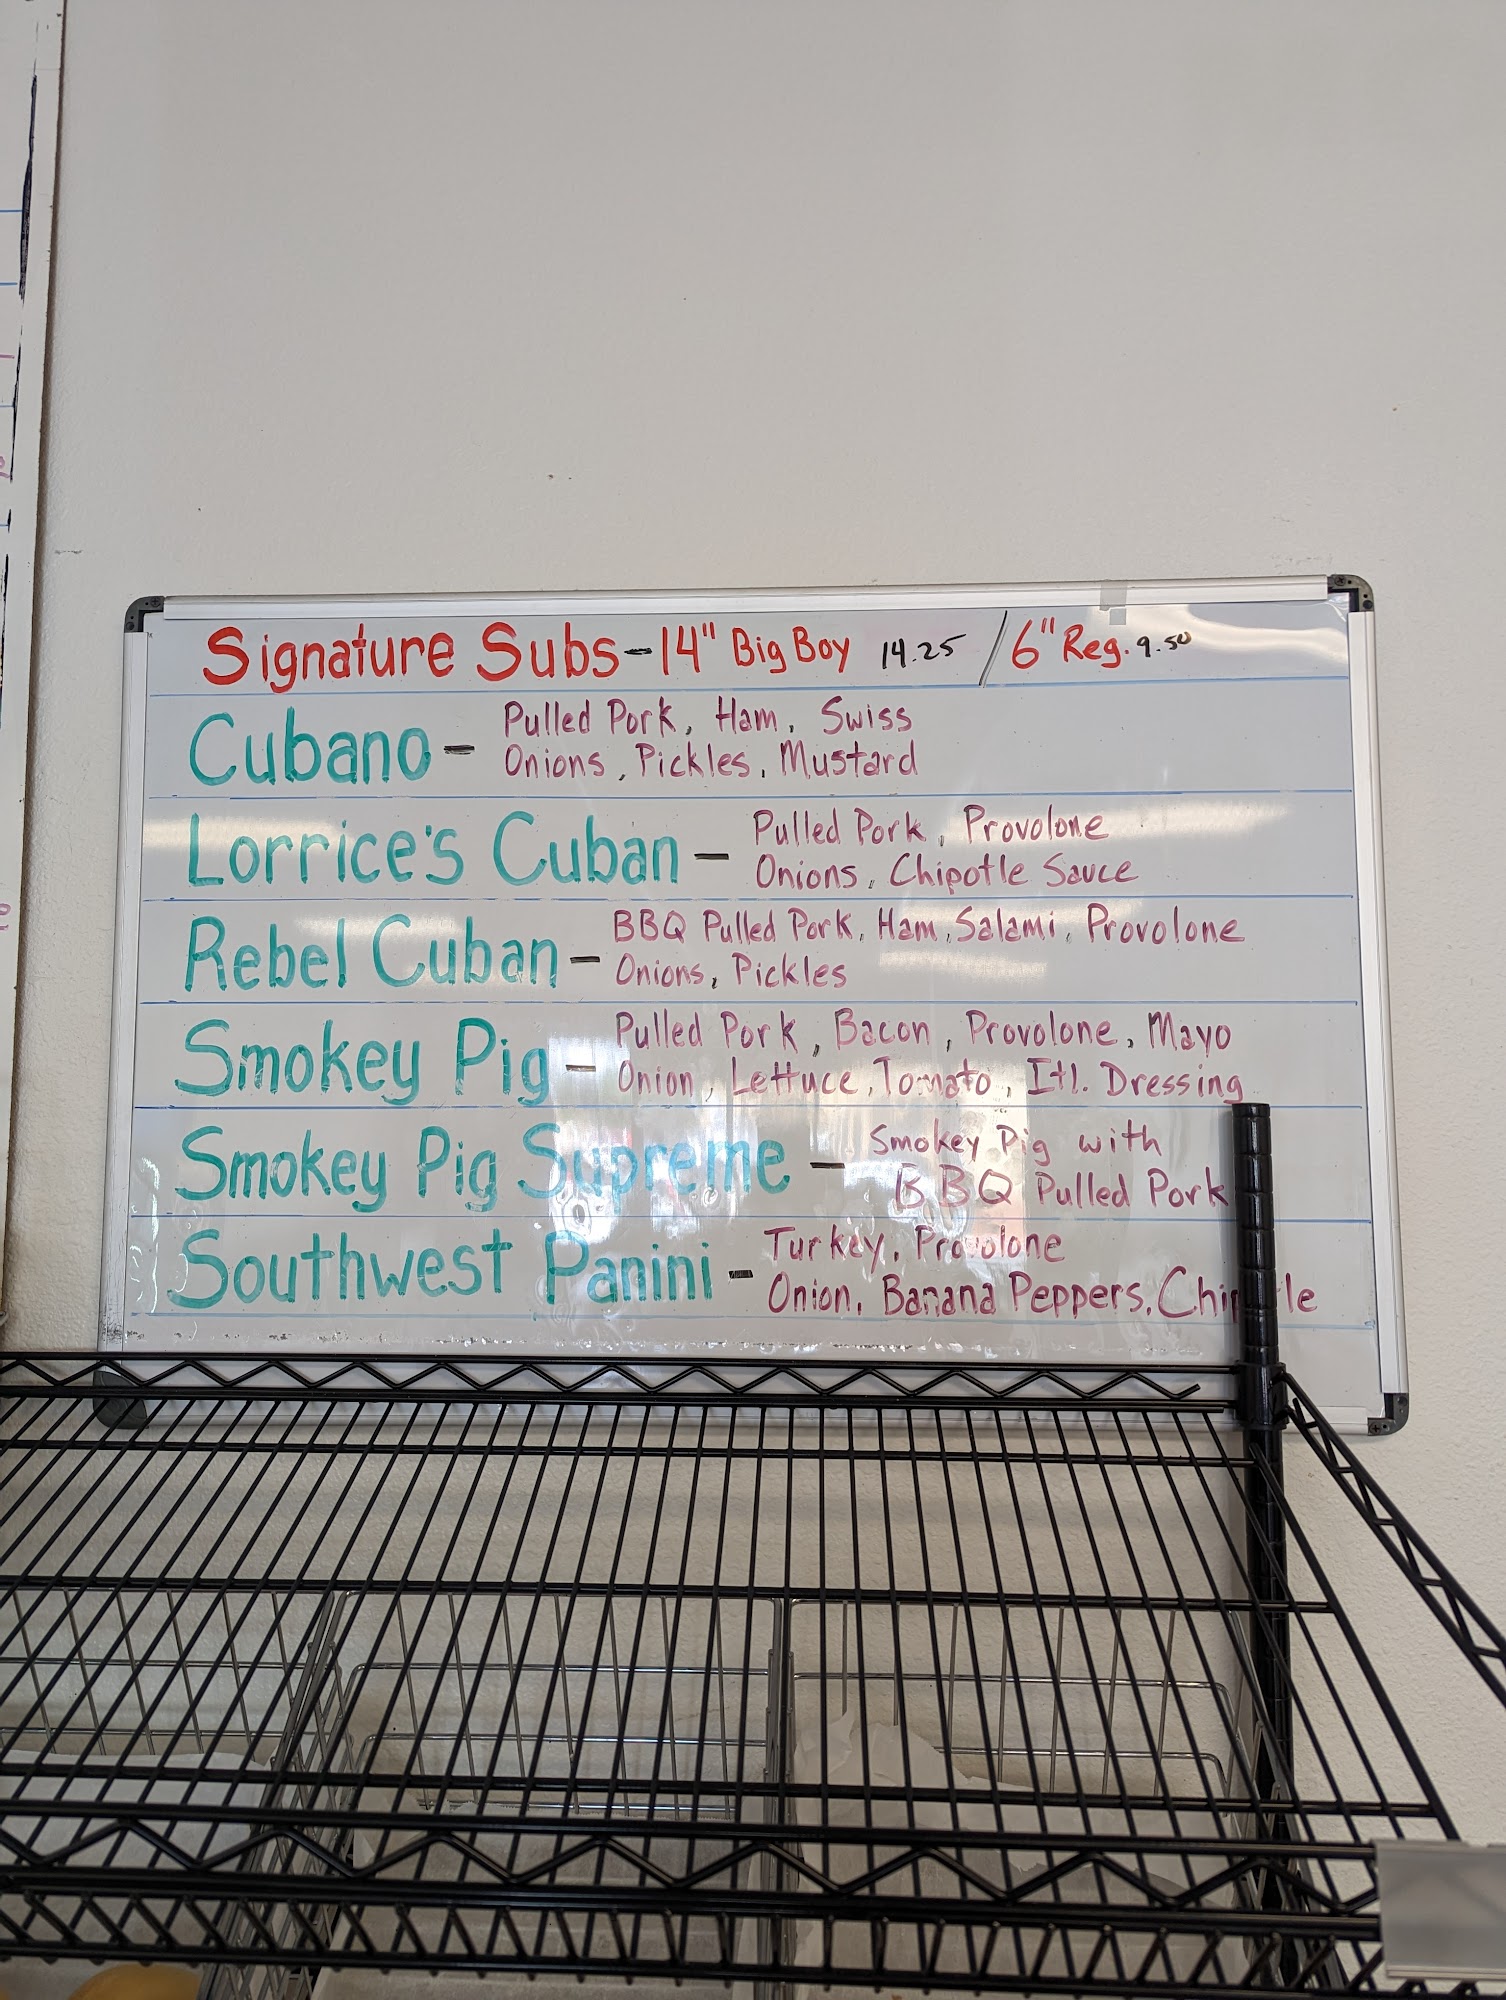 Signature Subs - 14" Big Boy 14.25 / 6" Reg. 9.50
Cubano - Pulled Pork, Ham, Swiss
Onions, Pickles, Mustard
Lorrice's Cuban - Pulled Pork, Provolone
Onions, Chipotle Sauce
Rebel Cuban - BBQ Pulled Pork, Ham, Salami, Provolone
Onions, Pickles
Smokey Pig - Pulled Pork, Bacon, Provolone, Mayo
Onion, Lettuce, Tomato, Itl. Dressing
Smokey Pig Supreme - Smokey Pig with
BBQ Pulled Pork
Southwest Panini - Turkey, Provolone
Onion, Banana Peppers, Chipotle